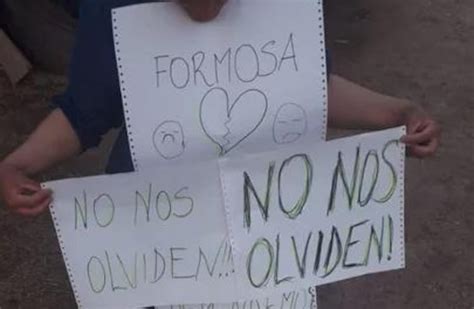 FORMOSA
NO NOS
OLVIDEN!!!
NO NOS
OLVIDEN!